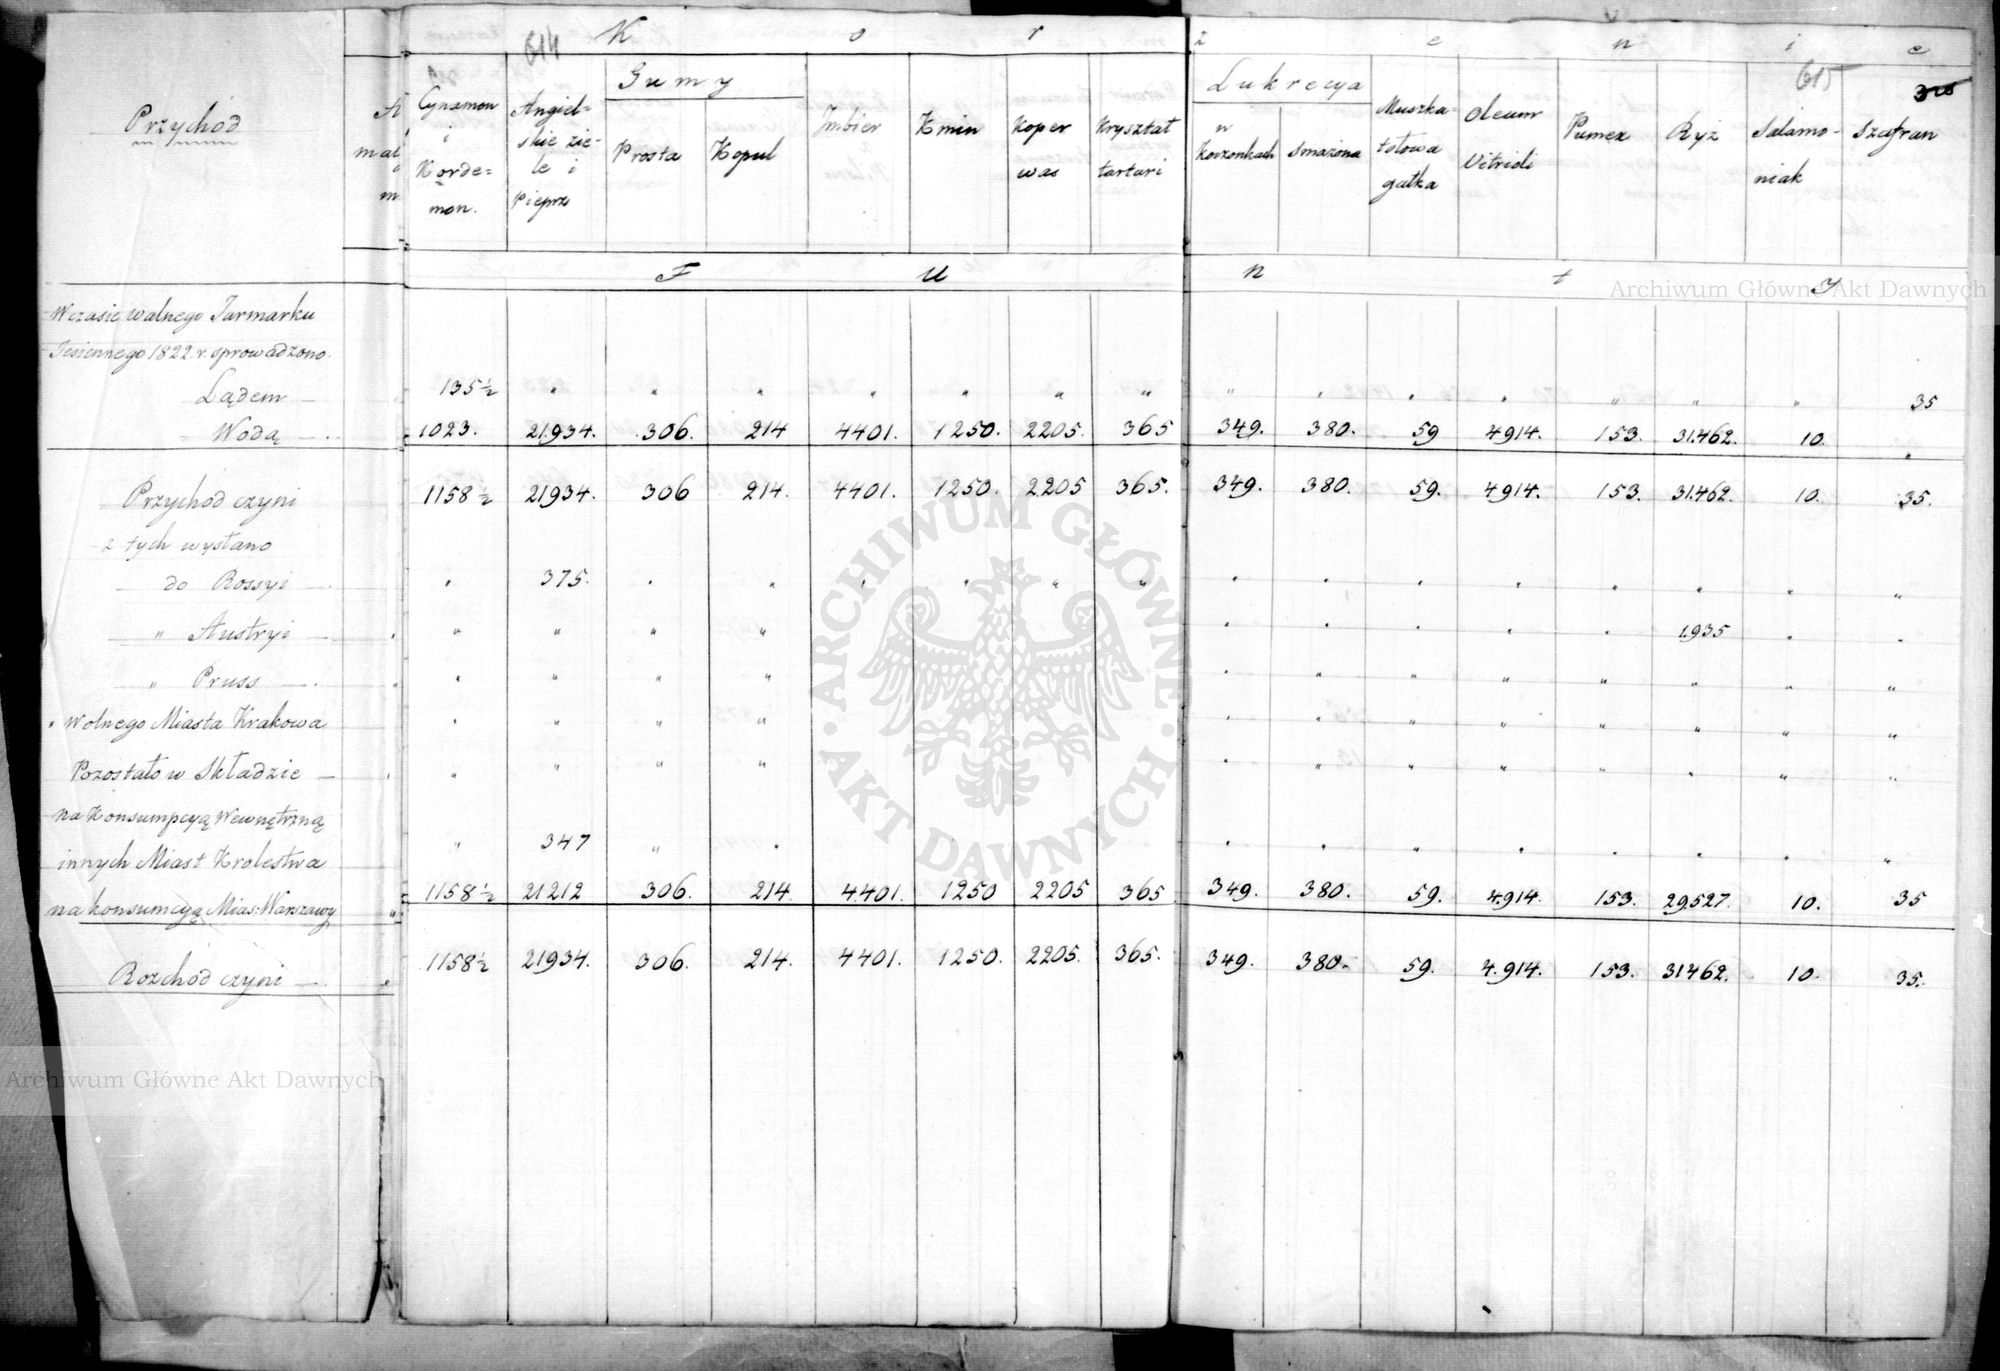 614 K o r z e n i e
615 315
Przychód
Cynamon i Korde=mon. Angiel=skie zie-le i Pieprz Gumy Prosta Kopul Imbier Kmin Koperwas Krysztat tartari Lukrecya w Korzonkach Smażona Muszka-tołowa gałka Oleum Vitrioli Pumex Ryż Salamo-niak Szafran
F u n t y
W czasie walnego Jarmarku
Jesiennego 1822. r. sprowadzono.
Lądem — 135½ " " " " " " " " " " " " " " 35
Wodą — . 1023. 21.934. 306. 214 4401. 1250. 2205. 365 349. 380. 59 4914. 153. 31.462. 10. "
Przychód czyni 1158½ 21934. 306 214. 4401. 1250. 2205 365. 349. 380. 59. 4914. 153. 31.462. 10. 35.
z tych wysłano
do Rossyi — . " 375. " " " " " " " " " " " " " "
" Austryi — " " " " " " " " " 1.935 " "
" Pruss — . " " " " " " " " " " " "
" Wolnego Miasta Krakowa " " " " " " " " " " " "
Pozostało w Składzie — " " " " " " " " " " " "
na Konsumpcyą Wewnętrzną
innych Miast Krolestwa " 347 " " " " " " " " " "
na konsumcyą Mias: Warszawy 1158½ 21212 306. 214 4.401. 1250 2205 365 349. 380. 59. 4.914. 153. 29.527. 10. 35
Rozchód czyni — 1158½ 21934. 306. 214. 4401. 1250. 2205. 365. 349. 380. 59. 4.914. 153. 31462. 10. 35.
Archiwum Główne Akt Dawnych
Archiwum Główne Akt Dawnych
ARCHIWUM GŁÓWNE AKT DAWNYCH